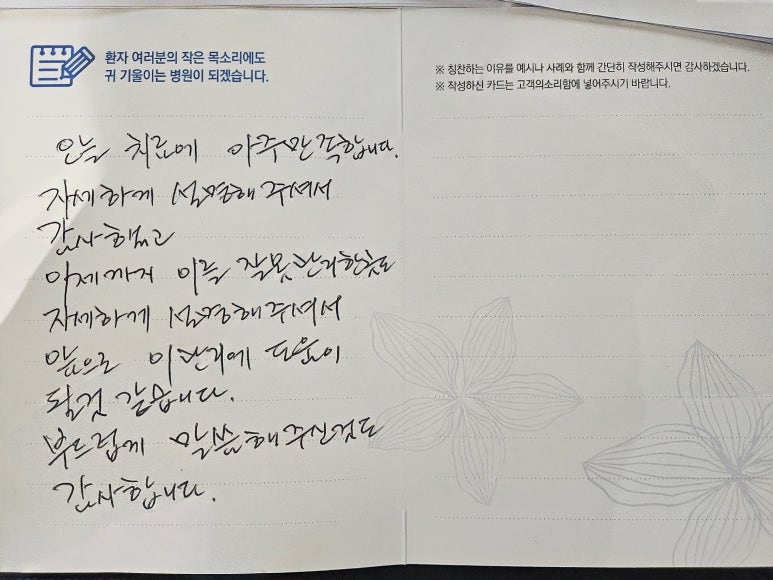 환자 여러분의 작은 목소리에도
귀 기울이는 병원이 되겠습니다.
※ 칭찬하는 이유를 예시나 사례와 함께 간단히 작성해주시면 감사하겠습니다.
※ 작성하신 카드는 고객의소리함에 넣어주시기 바랍니다.
오늘 치료에 아주만족합니다.
자세하게 설명해주셔서
감사했고
이제까지 이를 잘못관리한것도
자세하게 설명해주셔서
앞으로 이관리에 도움이
될것 같습니다.
부드럽게 말씀해주신점도
감사합니다.